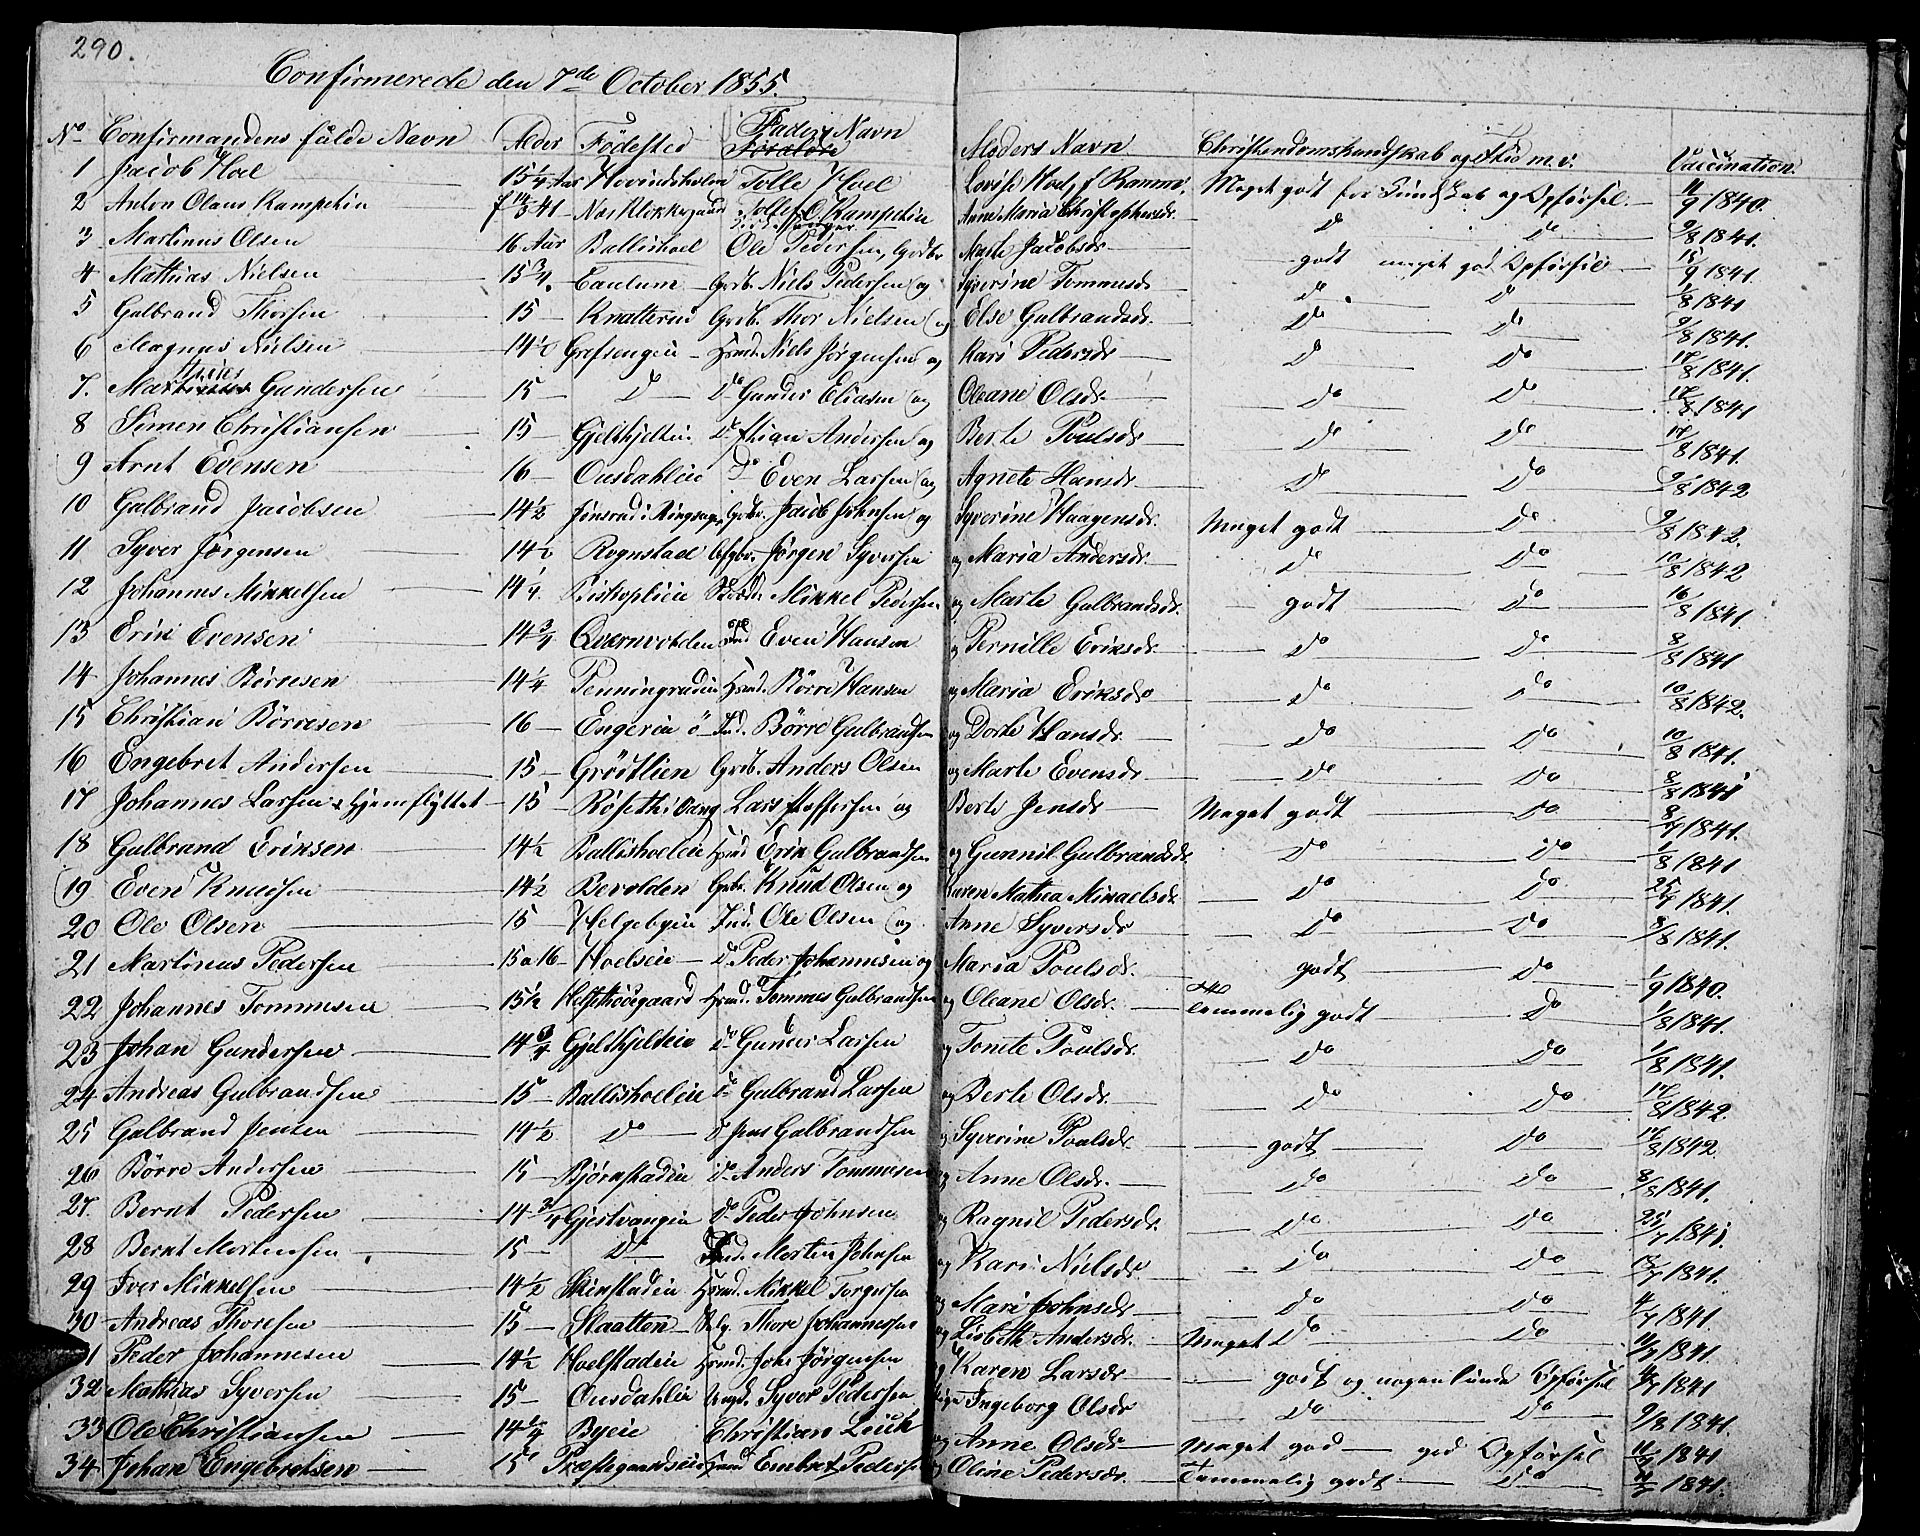 290.
Confirmerede den 7de October 1855.
No Confirmandens fulde Navn Alder Fødested Faders Navn Moders Navn Christendomskundskab og Flid m. v. Vaccination.
1 Jacob Hoel 15 1/4 Aar Hovindsholm Tolle Hoel Lovise Hoel f. Ramm Meget godt for Kundskab og Opførsel 11/9 1840.
2 Anton Olaus Rampetin Næs Klokkergaard Tollef O. Rampetin Anne Maria Christophersdr. Do Do 9/8 1841.
3 Martinus Olsen 16 Aar Ballishoel Ole Pedersen, Grdbr. Marte Jacobsdr. godt meget god Opførsel 15/9 1841.
4 Mathias Nielsen 15 3/4 Caulum Grdb. Niels Pedersen og Syverine Tommesdr Do Do 1/8 1841
5 Gulbrand Thorsen 15 Knatterud Grdb. Thor Nielsen og Else Gulbrandsdr. Do Do 9/8 1841.
6 Magnus Nielsen 14 1/2 Grefsengein Hsmd. Niels Jørgensen og Kari Pedersdr Do Do 17/8 1841.
7. Mathias Gundersen 15 Do Do Gunder Eliasen og Oleane Olsdr Do Do 17/8 1841
8 Simen Christiansen 15 Gjelthjeltein Do Xtian Andersen og Berte Poulsdr Do Do 17/8 1841.
9 Arnt Evensen 16 Ousdahleie Do Even Larsen og Agnete Hansdr Do Do 9/8 1842
10 Gulbrand Jacobsen 14 1/2 Jønsrud i Ringsager Grdbr. Jacob Johnsen og Syverine Haagensdr. Meget godt Do 9/8 1842.
11 Syver Jørgensen 14 1/2 Rognstad Jørgen Syversen og Maria Andersdr. Do Do 10/8 1842
12 Johannes Mikkelsen 14 1/4. Bishoplieie Mikkel Pedersen og Marte Gulbrandsdr. godt Do 16/8 1841.
13 Erik Evensen 14 3/4 Qvernvolden Ind Even Hansen og Pernille Eriksdr. Do Do 8/8 1841
14 Johannes Børresen 14 1/4 Penningrudein Hsmd. Børre Hansen og Maria Eriksdr Do Do 10/8 1842.
15 Christian Børresen 16 Engerin ö Ind. Børre Gulbrandsen og Dorte Hansdr. Do Do 10/8 1841.
16 Engebret Andersen 15 Grødtlien Grdb. Anders Olsen og Marte Evensdr. Do Do 8/8 1841
17 Johannes Larsen Hjemflyttet 15 Røseth i Vang Lars Stoffersen og Berte Jensdr. Meget godt Do 8/7 1841.
18 Gulbrand Eriksen 14 1/2 Ballishoeleie Hsmd Erik Gulbrandsen og Gunnil Gulbrandsdr. Do Do 1/8 1841
19 Even Knudsen 14 1/2 Bevolden Grdbr. Knud Olsen og Karen Mathea Mikaelsdr. Do Do 25/7 1841.
20 Ole Olsen 15 Helgebyein Ind. Ole Olsen og Anne Syversdr Do Do 8/8 1841.
21 Martinus Pedersen 15 a 16 Hoelseie Do Peder Johannesen og Maria Poulsdr. godt Do 1/9 1840.
22 Johannes Tommesen 15 1/2 Hsmd. Tommes Gulbrandsen og Oleane Olsdr. temmelig godt Do 1/8 1841.
23 Johan Gundersen 14 3/4 Gjelthjelteie Do Gunder Larsen og Tomte Poulsdr. Do Do 1/8 1841.
24 Andreas Gulbrandsen 15 Ballishoeleie Do Gulbrand Larsen og Berte Olsdr. Do Do 17/8 1842.
25 Gulbrand Jensen 14 1/2 Do Do Jens Gulbrandsen og Syverine Poulsdr. godt Do 17/8 1842
26 Børre Andersen 15 Bjørnstadein Do Anders Tommesen og Anne Olsdr. Do Do 8/8 1841.
27. Bernt Pedersen 14 3/4 Gjestvangein Do Peder Johnsen og Ragnil Pedersdr. Do Do 25/7 1841.
28 Bernt Mortensen 15 Do Ind. Morten Johnsen og Kari Nielsdr Do Do 13/7 1841.
29 Iver Mikkelsen 14 1/2 Skinstadein Hsmd. Mikkel Torgersen og Mari Johnsdr Do Do 11/7 1841
30 Andreas Thoresen 15 Slaatten Selg. Thore Johannessen og Lisbeth Andersdr. Meget Do Do 11/7 1841.
31 Peder Johannesen 14 1/2 Hoelstadein Hsmd. Johs Jørgensen og Karen Larsdr. godt og nogenlunde Opførsel 11/7 1841
32 Mathias Syversen 15 Ousdahlein Ungd. Syver Pedersen Ingeborg Olsdr Do Do 9/8 1841.
33 Ole Christiansen 14 3/4 Byeie Christian Leuth og Anne Olsdr. Meget god god Opførsel 11/7 1841
34 Johan Engebretsen 15 Præstegaardseie Hsmd Embret Pedersen og Oline Pedersdr. Temmelig godt Do 11/7 1841.